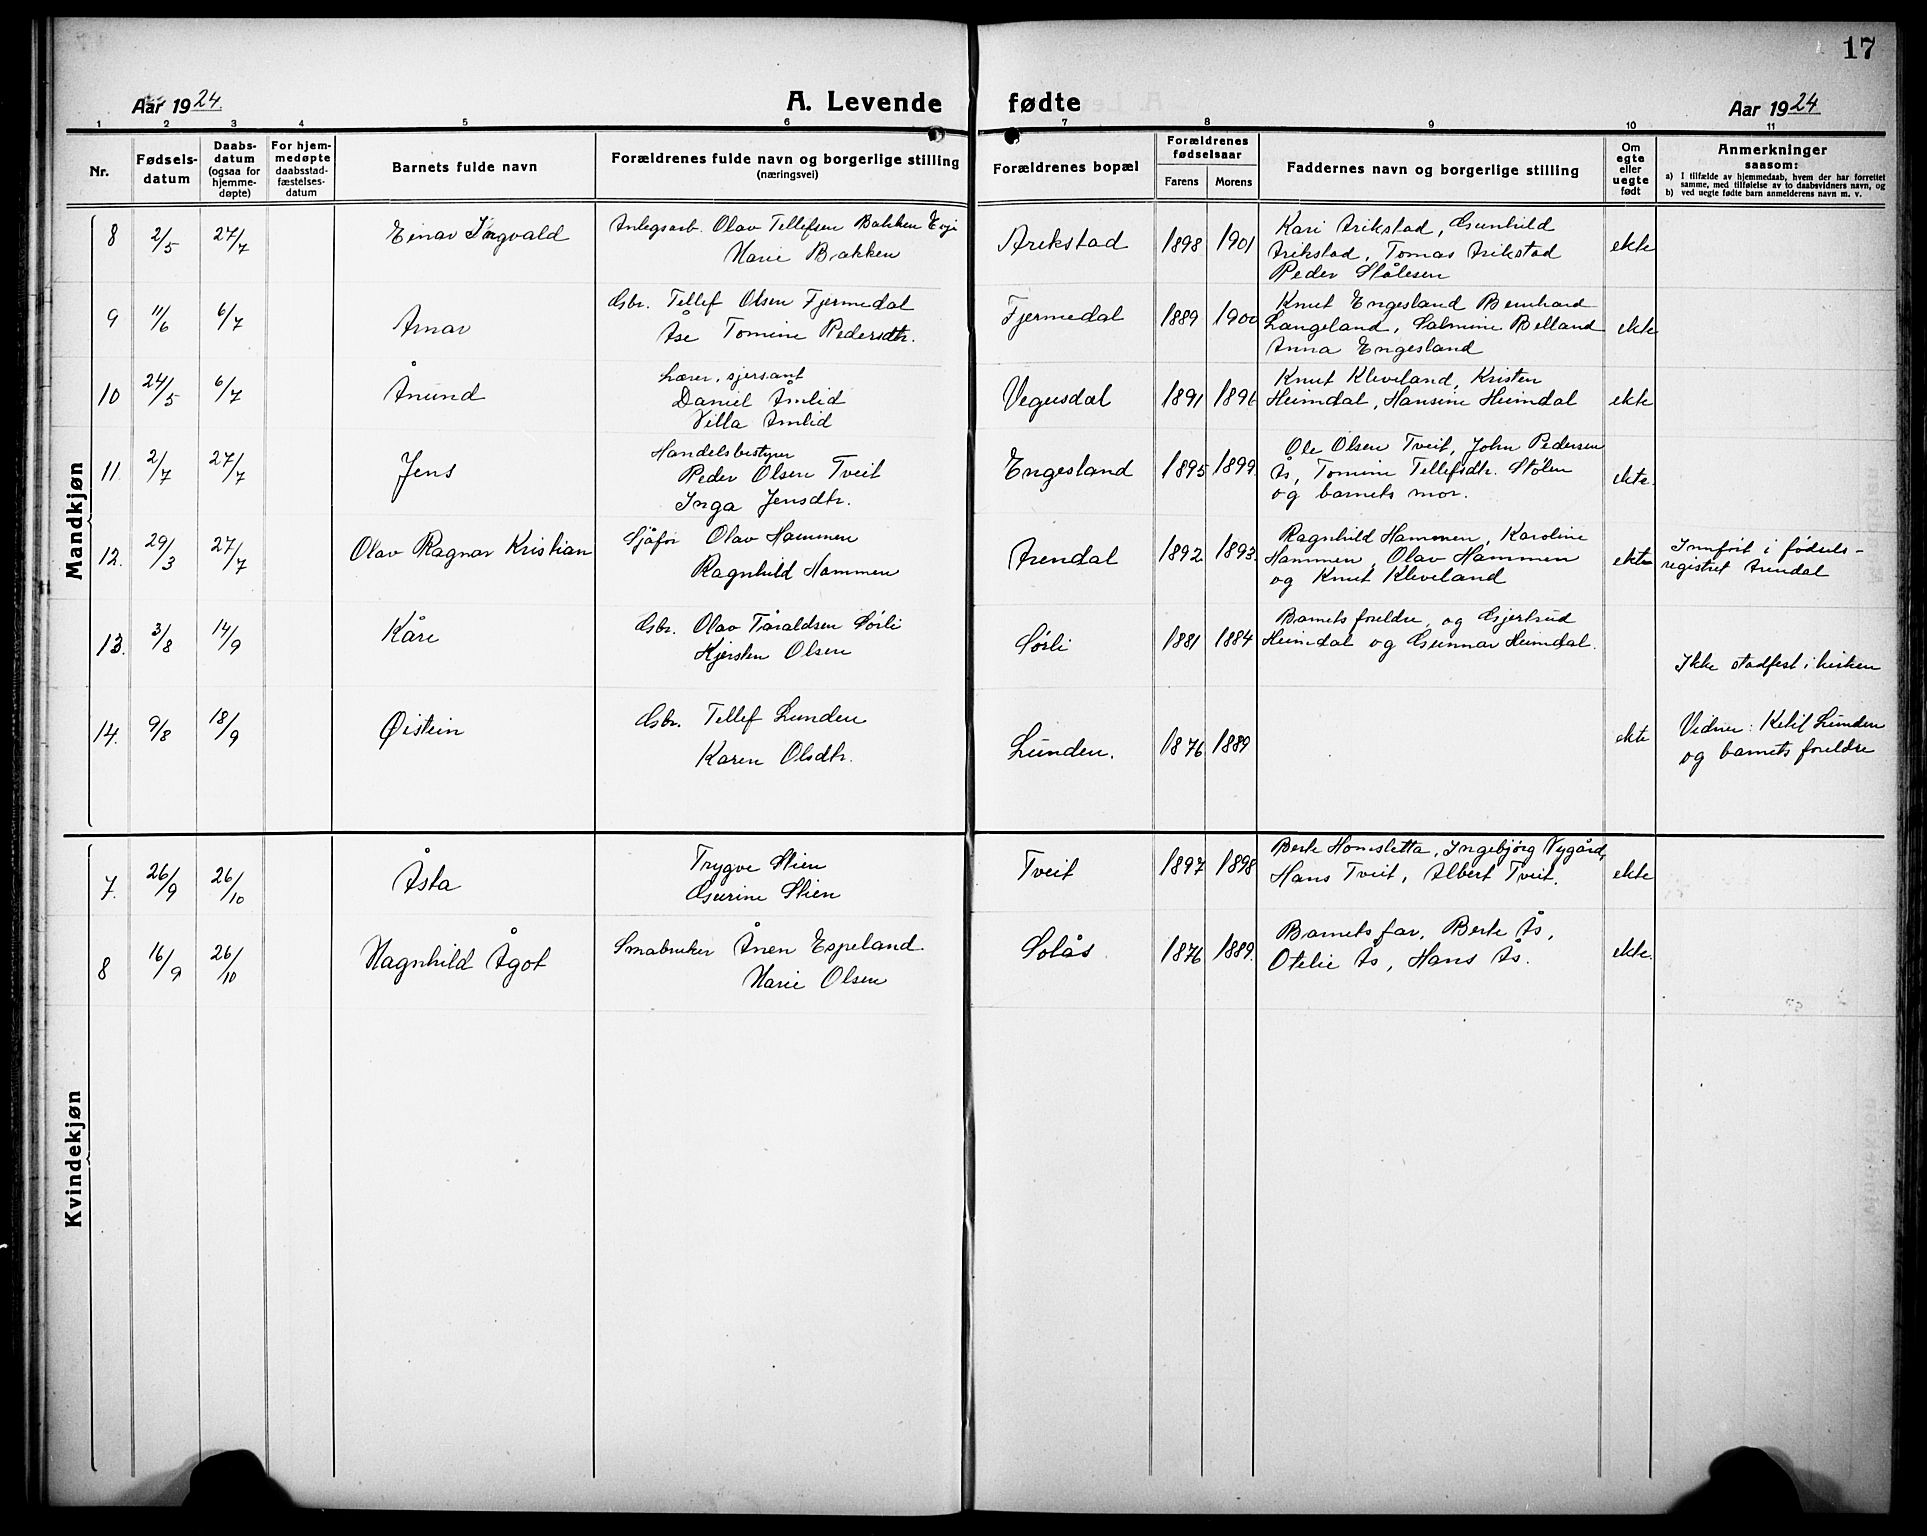 17
Aar 1924.
A. Levende fødte
Aar 1924
1 2 3 4 5 6 7 8 9 10 11
Nr.
Fødsels-
datum
Daabs-
datum
(ogsaa for
hjemme-
døpte)
For hjem-
medøpte
daabsstad-
fæstelses-
datum
Barnets fulde navn
Forældrenes fulde navn og borgerlige stilling
(næringsvei)
Forældrenes bopæl
Forældrenes
fødselsaar
Farens Morens
Faddernes navn og borgerlige stilling
Om
egte
eller
uegte
født
Anmerkninger
saasom:
a) I tilfælde av hjemmedaab, hvem der har forrettet
samme, med tilføielse av to daabsvidners navn, og
b) ved uegte fødte barn anmelderens navn m. v.
Mandkjøn
8 2/5 27/7 Einar Ingvald
Anlegsarb. Olav Tellefsen Bakken Evje
Marie Bakken
Arikstad 1898 1901
Kari Arikstad, Gunhild
Arikstad, Tomas Arikstad
Peder Ståლesen
ekte
9 11/6 6/7 Arnar
Gbr. Tellef Olsen Fjermedal
Åse Tomine Pedersdtr.
Fjermedal 1889 1900
Knut Engesland Bernhard
Langeland, Salmine Belland
Anna Engesland
ekte
10 24/5 6/7 Ånund
Lærer, sjersant
Daniel Åmlid
Villa Åmlid
Vegusdal 1891 1896
Knut Kleveland, Kristen
Heimdal, Hansine Heimdal
ekte
11. 2/7 27/7 Jens
Handelsbestyrer
Peder Olsen Tveit
Inga Jensdtr.
Engesland 1895 1899
Ole Olsen Tveit, John Pedersen
Ås, Tomine Tellefsdtr. Stølen
og barnets mor.
ekte.
12. 29/3 27/7 Olav Ragnar Kristian
Sjåfør Olav Hammen
Ragnhild Hammen
Arendal 1892 1893.
Ragnhild Hammen, Karoline
Hammen, Olav Hammen
og Knut Kleveland
ekte
Innført i fødsels-
registret Arendal
13. 3/8 14/9 Kåre
Gbr. Olav Taraldsen Sørli
Kjersten Olsen
Sørli 1881 1884
Barnets foreldre, og Gjertrud
Heimdal og Gunnar Heimdal.
Ikke stadfest i kirken
14. 9/8 18/9 Øistein
Gbr. Tellef Lunden
Karen Olsdtr.
Lunden. 1876 1889
ekte
Vidner: Ketil Lunden
og barnets foreldre
Kvindekjøn
7. 26/9 26/10 Åsta
Trygve Stien
Gurine Stien
Tveit 1897 1898
Berte Homsletta, Ingebjørg Nygård,
Hans Tveit, Albert Tveit.
ekte
8 16/9 26/10 Magnhild Ågot
Småbruker Ånen Espeland
Marie Olsen
Solås 1876 1889.
Barnets far, Berte Ås,
Otelie Ås, Hans Ås.
ekte.